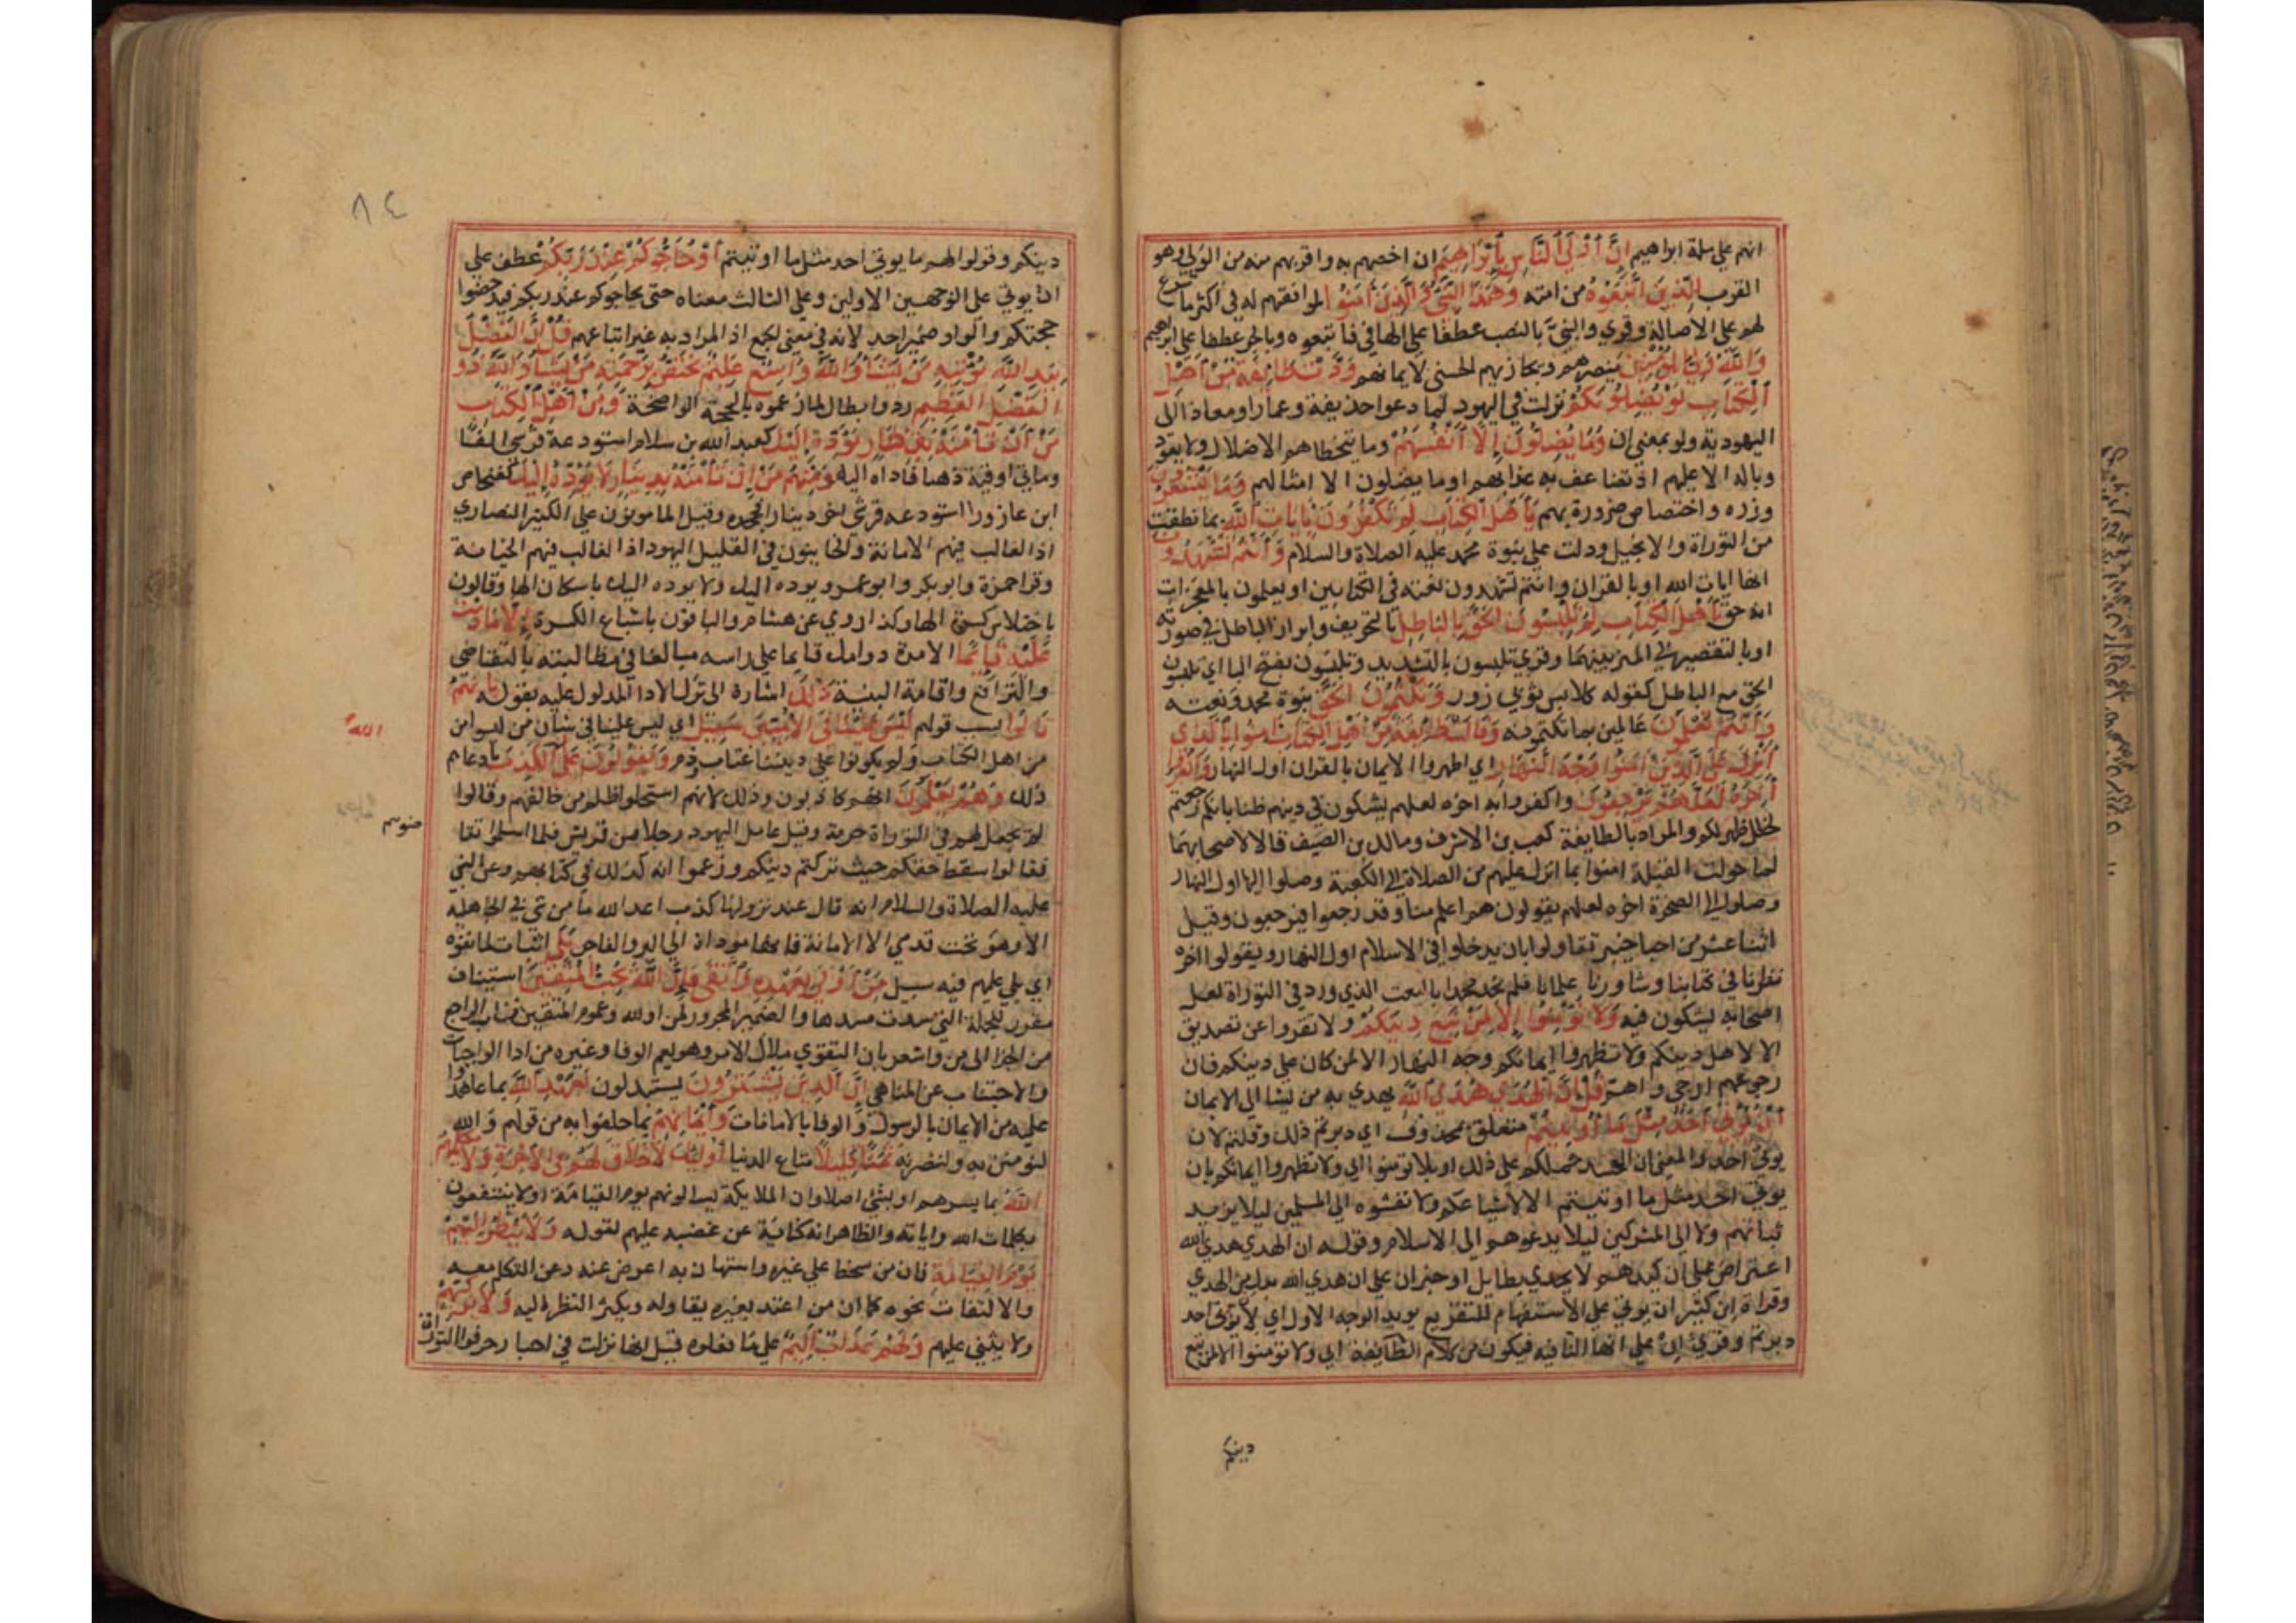 انهم على ملة ابراهيم إِنَّ أَوْلَى ٱلنَّاسِ بِإِبْرَاهِيمَ ان اخصهم به واقربهم منه من الولي وهو
القرب لَلَّذِينَ ٱتَّبَعُوهُ من امته وَهَٰذَا ٱلنَّبِىُّ وَٱلَّذِينَ آمَنُوا لموافقتهم له في اكثر ما شرع
لهم على الاصالة وقري والنبيَّ بالنصب عطفا على الها في اتبعوه وبالجر عطفا على ابراهيم
وَٱللَّهُ وَلِىُّ ٱلْمُؤْمِنِينَ ينصرهم ويجازيهم الحسنى لايمانهم وَدَّتْ طَائِفَةٌ مِنْ أَهْلِ
ٱلْكِتَابِ لَوْ يُضِلُّونَكُمْ نزلت في اليهود لما دعوا حذيفة وعمارا ومعاذا الى
اليهودية ولو بمعنى ان وَمَا يُضِلُّونَ إِلَّا أَنْفُسَهُمْ وما يتخطاهم الاضلال ولا يعود
وباله الا عليهم اذ تضاعف به عذابهم او ما يضلون الا امثالهم وَمَا يَشْعُرُونَ
وزره واختصاص ضرره بهم يَا أَهْلَ ٱلْكِتَابِ لِمَ تَكْفُرُونَ بِآيَاتِ ٱللَّهِ بما نطقت
من التوراة والانجيل ودلت على نبوة محمد عليه الصلاة والسلام وَأَنْتُمْ تَشْهَدُونَ
انها ايات الله او بالقران وانتم تشهدون نعته في الكتابين او تعلمون بالمعجزات
انه حق يَا أَهْلَ ٱلْكِتَابِ لِمَ تَلْبِسُونَ ٱلْحَقَّ بِٱلْبَاطِلِ بالتحريف وابراز الباطل في صورته
او بالتقصير في الميز بينهما وقري تلبسون بالتشديد وتلبسون بفتح البا اي تلبسون
الحق مع الباطل كقوله كلابس ثوبي زور وَتَكْتُمُونَ ٱلْحَقَّ نبوة محمد ونعته
وَأَنْتُمْ تَعْلَمُونَ عالمين بما تكتمونه وَقَالَتْ طَائِفَةٌ مِنْ أَهْلِ ٱلْكِتَابِ آمِنُوا بِٱلَّذِى
أُنْزِلَ عَلَى ٱلَّذِينَ آمَنُوا وَجْهَ ٱلنَّهَارِ اي اظهروا الايمان بالقران اول النهار وَٱكْفُرُوا
آخِرَهُ لَعَلَّهُمْ يَرْجِعُونَ واكفروا به اخره لعلهم يشكون في دينهم ظنا بانكم رجعتم
لخلل ظهر لكم والمراد بالطايفة كعب بن الاشرف ومالك بن الصيف قالا لاصحابهما
لما حولت القبلة امنوا بما انزل عليهم من الصلاة الى الكعبة وصلوا اليها اول النهار
وصلوا الى الصخرة اخره لعلهم يقولون هم اعلم منا وقد رجعوا فيرجعون وقيل
اثنا عشر من احبار خيبر تقاولوا بان يدخلوا في الاسلام اول النهار ويقولوا اخره
نظرنا في كتابنا وشاورنا علمانا فلم نجد محمدا بالنعت الذي ورد في التوراة لعل
اصحابه يشكون فيه وَلَا تُؤْمِنُوا إِلَّا لِمَنْ تَبِعَ دِينَكُمْ ولا تقروا عن تصديق
الا لاهل دينكم ولا تظهروا ايمانكم وجه النهار الا لمن كان على دينكم فان
رجوعهم ارجى واهم قُلْ إِنَّ ٱلْهُدَى هُدَى ٱللَّهِ يهدي به من يشا الى الايمان
أَنْ يُؤْتَى أَحَدٌ مِثْلَ مَا أُوتِيتُمْ متعلق بمحذوف اي دبرتم ذلك وقلتم لان
يوتى احد والمعنى ان الحسد حملكم على ذلك او بلا تومنوا اي ولا تظهروا ايمانكم بان
يوتى احد مثل ما اوتيتم الا لاشياعكم ولا تفشوه الى المسلمين ليلا يزيد
ثباتهم ولا الى المشركين ليلا يدعوهم الى الاسلام وقوله ان الهدى هدى الله
اعتراض على ان كيدهم لا يجدي بطايل او خبر ان على ان هدى الله بدل من الهدى
وقراة ابن كثير ان يوتى على الاستفهام للتقريع يويد الوجه الاول اي لان يوتى احد
دبرتم وقري ان على انها النافيه فيكون من كلام الطايفة اي ولا تومنوا الا لمن تبع
دينكم
٨٤
دينكم وقولوا لهم ما يوتى احد مثل ما اوتيتم أَوْ يُحَاجُّوكُمْ عِنْدَ رَبِّكُمْ عطف على
ان يوتى على الوجهين الاولين وعلى الثالث معناه حتى يحاجوكم عند ربكم فيدحضوا
حجتكم والواو ضمير احد لانه في معنى الجمع اذ المراد به غير اتباعهم قُلْ إِنَّ ٱلْفَضْلَ
بِيَدِ ٱللَّهِ يُؤْتِيهِ مَنْ يَشَاءُ وَٱللَّهُ وَاسِعٌ عَلِيمٌ يَخْتَصُّ بِرَحْمَتِهِ مَنْ يَشَاءُ وَٱللَّهُ ذُو
ٱلْفَضْلِ ٱلْعَظِيمِ رد وابطال لما زعموه بالحجة الواضحة وَمِنْ أَهْلِ ٱلْكِتَابِ
مَنْ إِنْ تَأْمَنْهُ بِقِنْطَارٍ يُؤَدِّهِ إِلَيْكَ كعبد الله بن سلام استودعه قرشي الفا
ومايتي اوقية ذهبا فاداه اليه وَمِنْهُمْ مَنْ إِنْ تَأْمَنْهُ بِدِينَارٍ لَا يُؤَدِّهِ إِلَيْكَ كفنحاص
ابن عازورا استودعه قرشي اخر دينارا فجحده وقيل المامونون على الكثير النصارى
اذ الغالب فيهم الامانة والخاينون في القليل اليهود اذ الغالب فيهم الخيانة
وقرا حمزة وابو بكر وابو عمرو يوده اليك ولا يوده اليك باسكان الها وقالون
باختلاس كسرة الها وكذا روي عن هشام والباقون باشباع الكسرة إِلَّا مَا دُمْتَ
عَلَيْهِ قَائِمًا الا مدة دوامك قايما على راسه مبالغا في مطالبته بالتقاضي
والترافع واقامة البينة ذَٰلِكَ اشارة الى ترك الادا المدلول عليه بقوله بِأَنَّهُمْ
قَالُوا بسبب قولهم لَيْسَ عَلَيْنَا فِى ٱلْأُمِّيِّينَ سَبِيلٌ اي ليس علينا في شان من ليسوا من
من اهل الكتاب ولم يكونوا على ديننا عتاب وذم وَيَقُولُونَ عَلَى ٱلْكَذِبَ بادعايهم
الله
ذلك وَهُمْ يَعْلَمُونَ انهم كاذبون وذلك لانهم استحلوا ظلم من خالفهم وقالوا
لم يجعل لهم في التوراة حرمة وقيل عامل اليهود رجلا من قريش فلما اسلموا تقا
ضوهم
فقالوا سقط حقكم حيث تركتم دينكم وزعموا انه كذلك في كتابهم وعن النبي
عليه الصلاة والسلام انه قال عند نزولها كذب اعدا الله ما من شي في الجاهلية
الا وهو تحت قدمي الا الامانة فانها موداة الى البر والفاجر بَلَى اثبات لما نفوه
اي بلى عليهم فيه سبيل مَنْ أَوْفَى بِعَهْدِهِ وَٱتَّقَى فَإِنَّ ٱللَّهَ يُحِبُّ ٱلْمُتَّقِينَ استيناف
مقرر للجملة التي سدت مسدها والضمير المجرور لمن او لله وعموم المتقين ناب الراجع
من الجزا الى من واشعر بان التقوى ملاك الامر وهو يعم الوفا وغيره من ادا الواجبات
والاجتناب عن المناهي إِنَّ ٱلَّذِينَ يَشْتَرُونَ يستبدلون بِعَهْدِ ٱللَّهِ بما عاهدوا
عليه من الايمان بالرسول والوفا بالامانات وَأَيْمَانِهِمْ بما حلفوا به من قولهم والله
لنومنن به ولننصرنه ثَمَنًا قَلِيلًا متاع الدنيا أُولَٰئِكَ لَا خَلَاقَ لَهُمْ فِى ٱلْآخِرَةِ وَلَا يُكَلِّمُهُمُ
ٱللَّهُ بما يسرهم او بشي اصلا وان الملايكة يسالونهم يوم القيامة او لا ينتفعون
بكلمات الله واياته والظاهر انه كناية عن غضبه عليهم لقوله وَلَا يَنْظُرُ إِلَيْهِمْ
يَوْمَ ٱلْقِيَامَةِ فان من سخط على غيره واستهان به اعرض عنه وعن التكلم معه
والالتفات نحوه كما ان من اعتد بغيره يقاوله ويكثر النظر اليه وَلَا يُزَكِّيهِمْ
ولا يثني عليهم وَلَهُمْ عَذَابٌ أَلِيمٌ على ما فعلوه قيل انها نزلت في احبار حرفوا التوراة